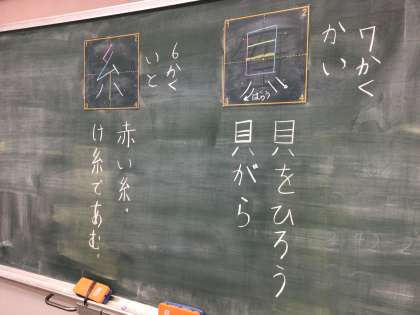 7かく
かい
貝
はらう
貝をひろう
貝がら
6かく
いと
糸
赤い糸。
け糸であむ。